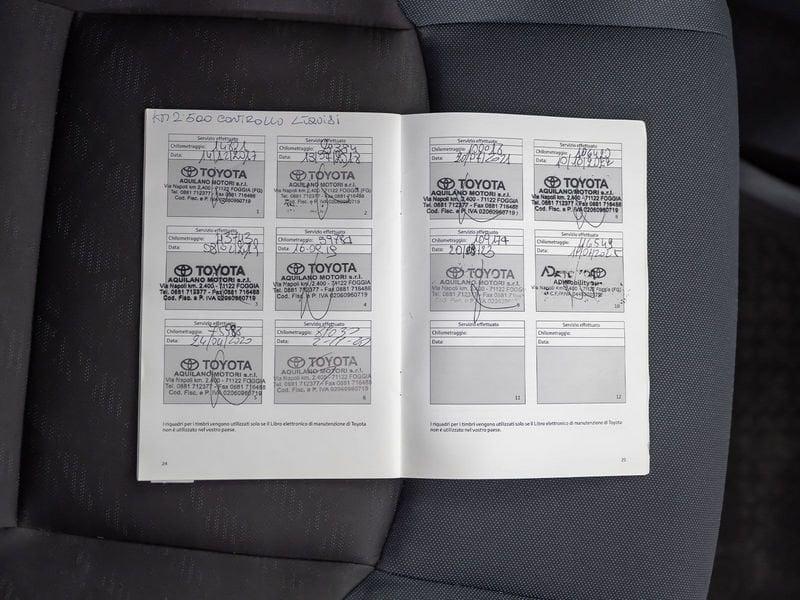 KM 2500 CONTROLLO LIQUIDI
Servizio effettuato
Chilometraggio: 14821
Data: 14/12/2017
TOYOTA
AQUILANO MOTORI s.r.l.
Via Napoli km. 2,400 - 71122 FOGGIA (FG)
Tel. 0881 712377 - Fax 0881 716488
Cod. Fisc. e P. IVA 02060960719
1
Servizio effettuato
Chilometraggio:
Data:
TOYOTA
AQUILANO MOTORI s.r.l.
Via Napoli km. 2,400 - 71122 FOGGIA
Tel. 0881 712377 - Fax 0881 716488
Cod. Fisc. e P. IVA 02060960719
2
Servizio effettuato
Chilometraggio:
Data:
TOYOTA
AQUILANO MOTORI s.r.l.
Via Napoli km. 2,400 - 71122 FOGGIA
Tel. 0881 712377 - Fax 0881 716488
Cod. Fisc. e P. IVA 02060960719
3
Servizio effettuato
Chilometraggio:
Data:
TOYOTA
AQUILANO MOTORI s.r.l.
Via Napoli km. 2,400 - 71122 FOGGIA
Tel. 0881 712377 - Fax 0881 716488
Cod. Fisc. e P. IVA 02060960719
4
Servizio effettuato
Chilometraggio:
Data: 24/04/2020
TOYOTA
AQUILANO MOTORI s.r.l.
Via Napoli km. 2,400 - 71122 FOGGIA
Tel. 0881 712377 - Fax 0881 716488
Cod. Fisc. e P. IVA 02060960719
5
Servizio effettuato
Chilometraggio:
Data:
TOYOTA
AQUILANO MOTORI s.r.l.
Via Napoli km. 2,400 - 71122 FOGGIA
Tel. 0881 712377 - Fax 0881 716488
Cod. Fisc. e P. IVA 02060960719
6
I riquadri per i timbri vengono utilizzati solo se il Libro elettronico di manutenzione di Toyota
non è utilizzato nel vostro paese.
24
Servizio effettuato
Chilometraggio:
Data: 20/07/2021
TOYOTA
AQUILANO MOTORI s.r.l.
Via Napoli km. 2,400 - 71122 FOGGIA
Tel. 0881 712377 - Fax 0881 716488
Cod. Fisc. e P. IVA 02060960719
Servizio effettuato
Chilometraggio:
Data: 10/10/2022
TOYOTA
AQUILANO MOTORI s.r.l.
Via Napoli km. 2,400 - 71122 FOGGIA
Tel. 0881 712377 - Fax 0881 716488
Cod. Fisc. e P. IVA 02060960719
Servizio effettuato
Chilometraggio:
Data:
TOYOTA
AQUILANO MOTORI s.r.l.
Via Napoli km. 2,400 - 71122 FOGGIA
Tel. 0881 712377 - Fax 0881 716488
Cod. Fisc. e P. IVA 02060960719
Servizio effettuato
Chilometraggio:
Data:
10
Servizio effettuato
Chilometraggio:
Data:
11
Servizio effettuato
Chilometraggio:
Data:
12
I riquadri per i timbri vengono utilizzati solo se il Libro elettronico di manutenzione di Toyota
non è utilizzato nel vostro paese.
25